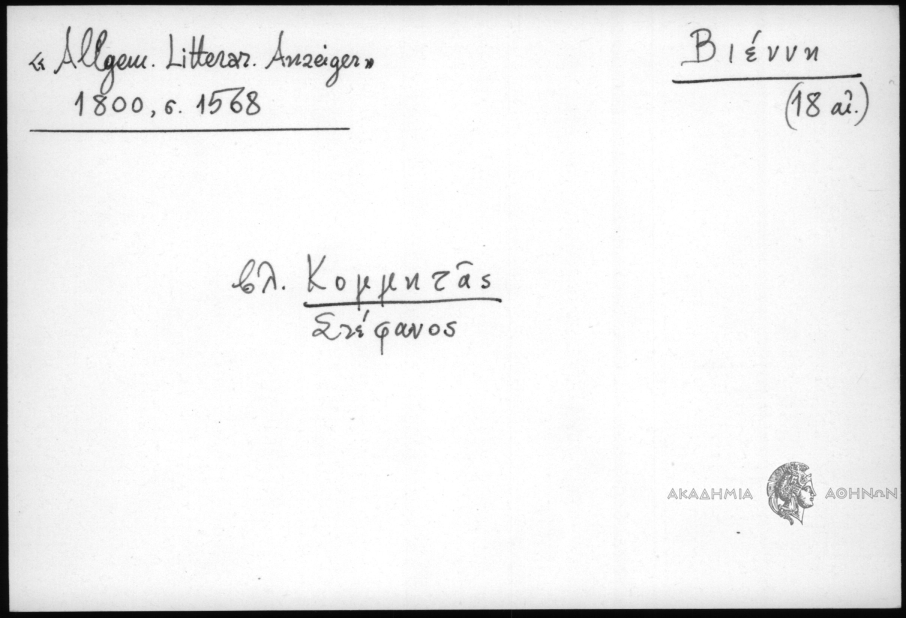 « Allgem. Litterar. Anzeiger»
1800, σ. 1568
Βιέννη
(18 αἰ.)
βλ. Κομμητᾶς
Στέφανος
ΑΚΑΔΗΜΙΑ ΑΘΗΝΩΝ